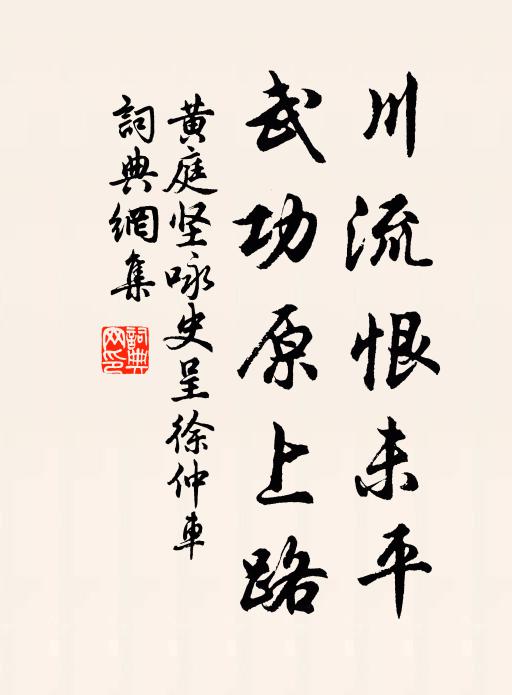 川流恨未平
武功原上路
黄庭坚咏史呈徐仲車
詞典網集
詞典網印